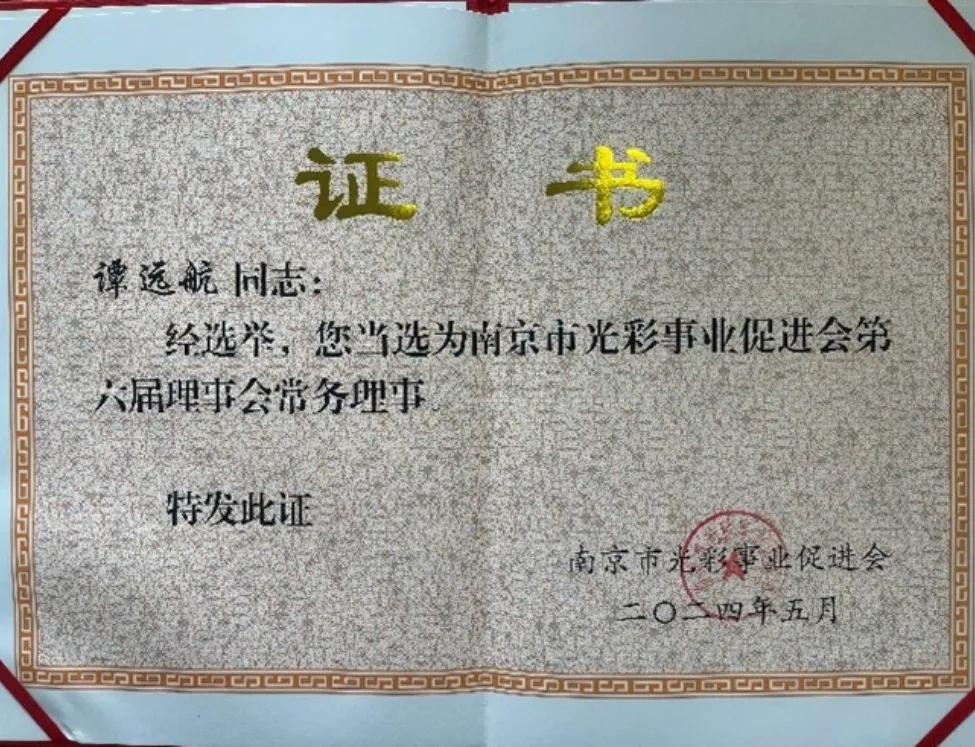 证 书
谭远航 同志：
经选举，您当选为南京市光彩事业促进会第
六届理事会常务理事
特发此证
南京市光彩事业促进会
二〇二四年五月